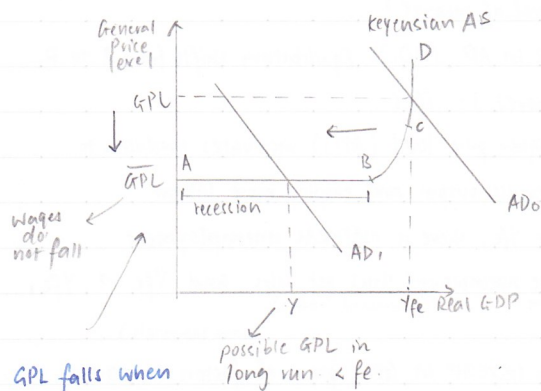 General
Price
level
Keyensian AS
D
GPL
C
A
B
GPL
recession
wages
do
not fall
AD₀
AD₁
Y
Yfe Real GDP
possible GPL in
long run < fe.
GPL falls when